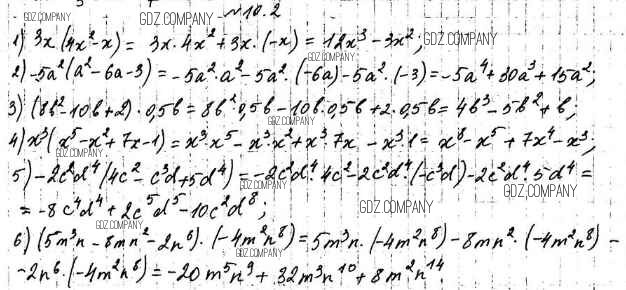 GDZ.COMPANY
GDZ.COMPANY - №10.2
1) 3x(4x²-x) = 3x·4x²+3x·(-x) = 12x³-3x²; GDZ.COMPANY
GDZ.COMPANY
2) -5a²(a²-6a-3) = -5a²·a²-5a²·(-6a)-5a²·(-3) = -5a⁴+30a³+15a²;
3) (8b²-10b+2)·0,5b = 8b²·0,5b-10b·0,5b+2·0,5b = 4b³-5b²+b;
GDZ.COMPANY
4) x³(x⁵-x²+7x-1) = x³·x⁵-x³·x²+x³·7x-x³·1 = x⁸-x⁵+7x⁴-x³;
GDZ.COMPANY
5) -2c²d⁴(4c²-c³d+5d⁴) = -2c²d⁴·4c²-2c²d⁴(-c³d)-2c²d⁴·5d⁴ =
GDZ.COMPANY
GDZ.COMPANY
= -8c⁴d⁴+2c⁵d⁵-10c²d⁸;
GDZ.COMPANY
GDZ.COMPANY
6) (5m³n-8mn²-2n⁶)·(-4m²n⁸) = 5m³n·(-4m²n⁸)-8mn²·(-4m²n⁸)-
GDZ.COMPANY
-2n⁶·(-4m²n⁸) = -20m⁵n⁹+32m³n¹⁰+8m²n¹⁴